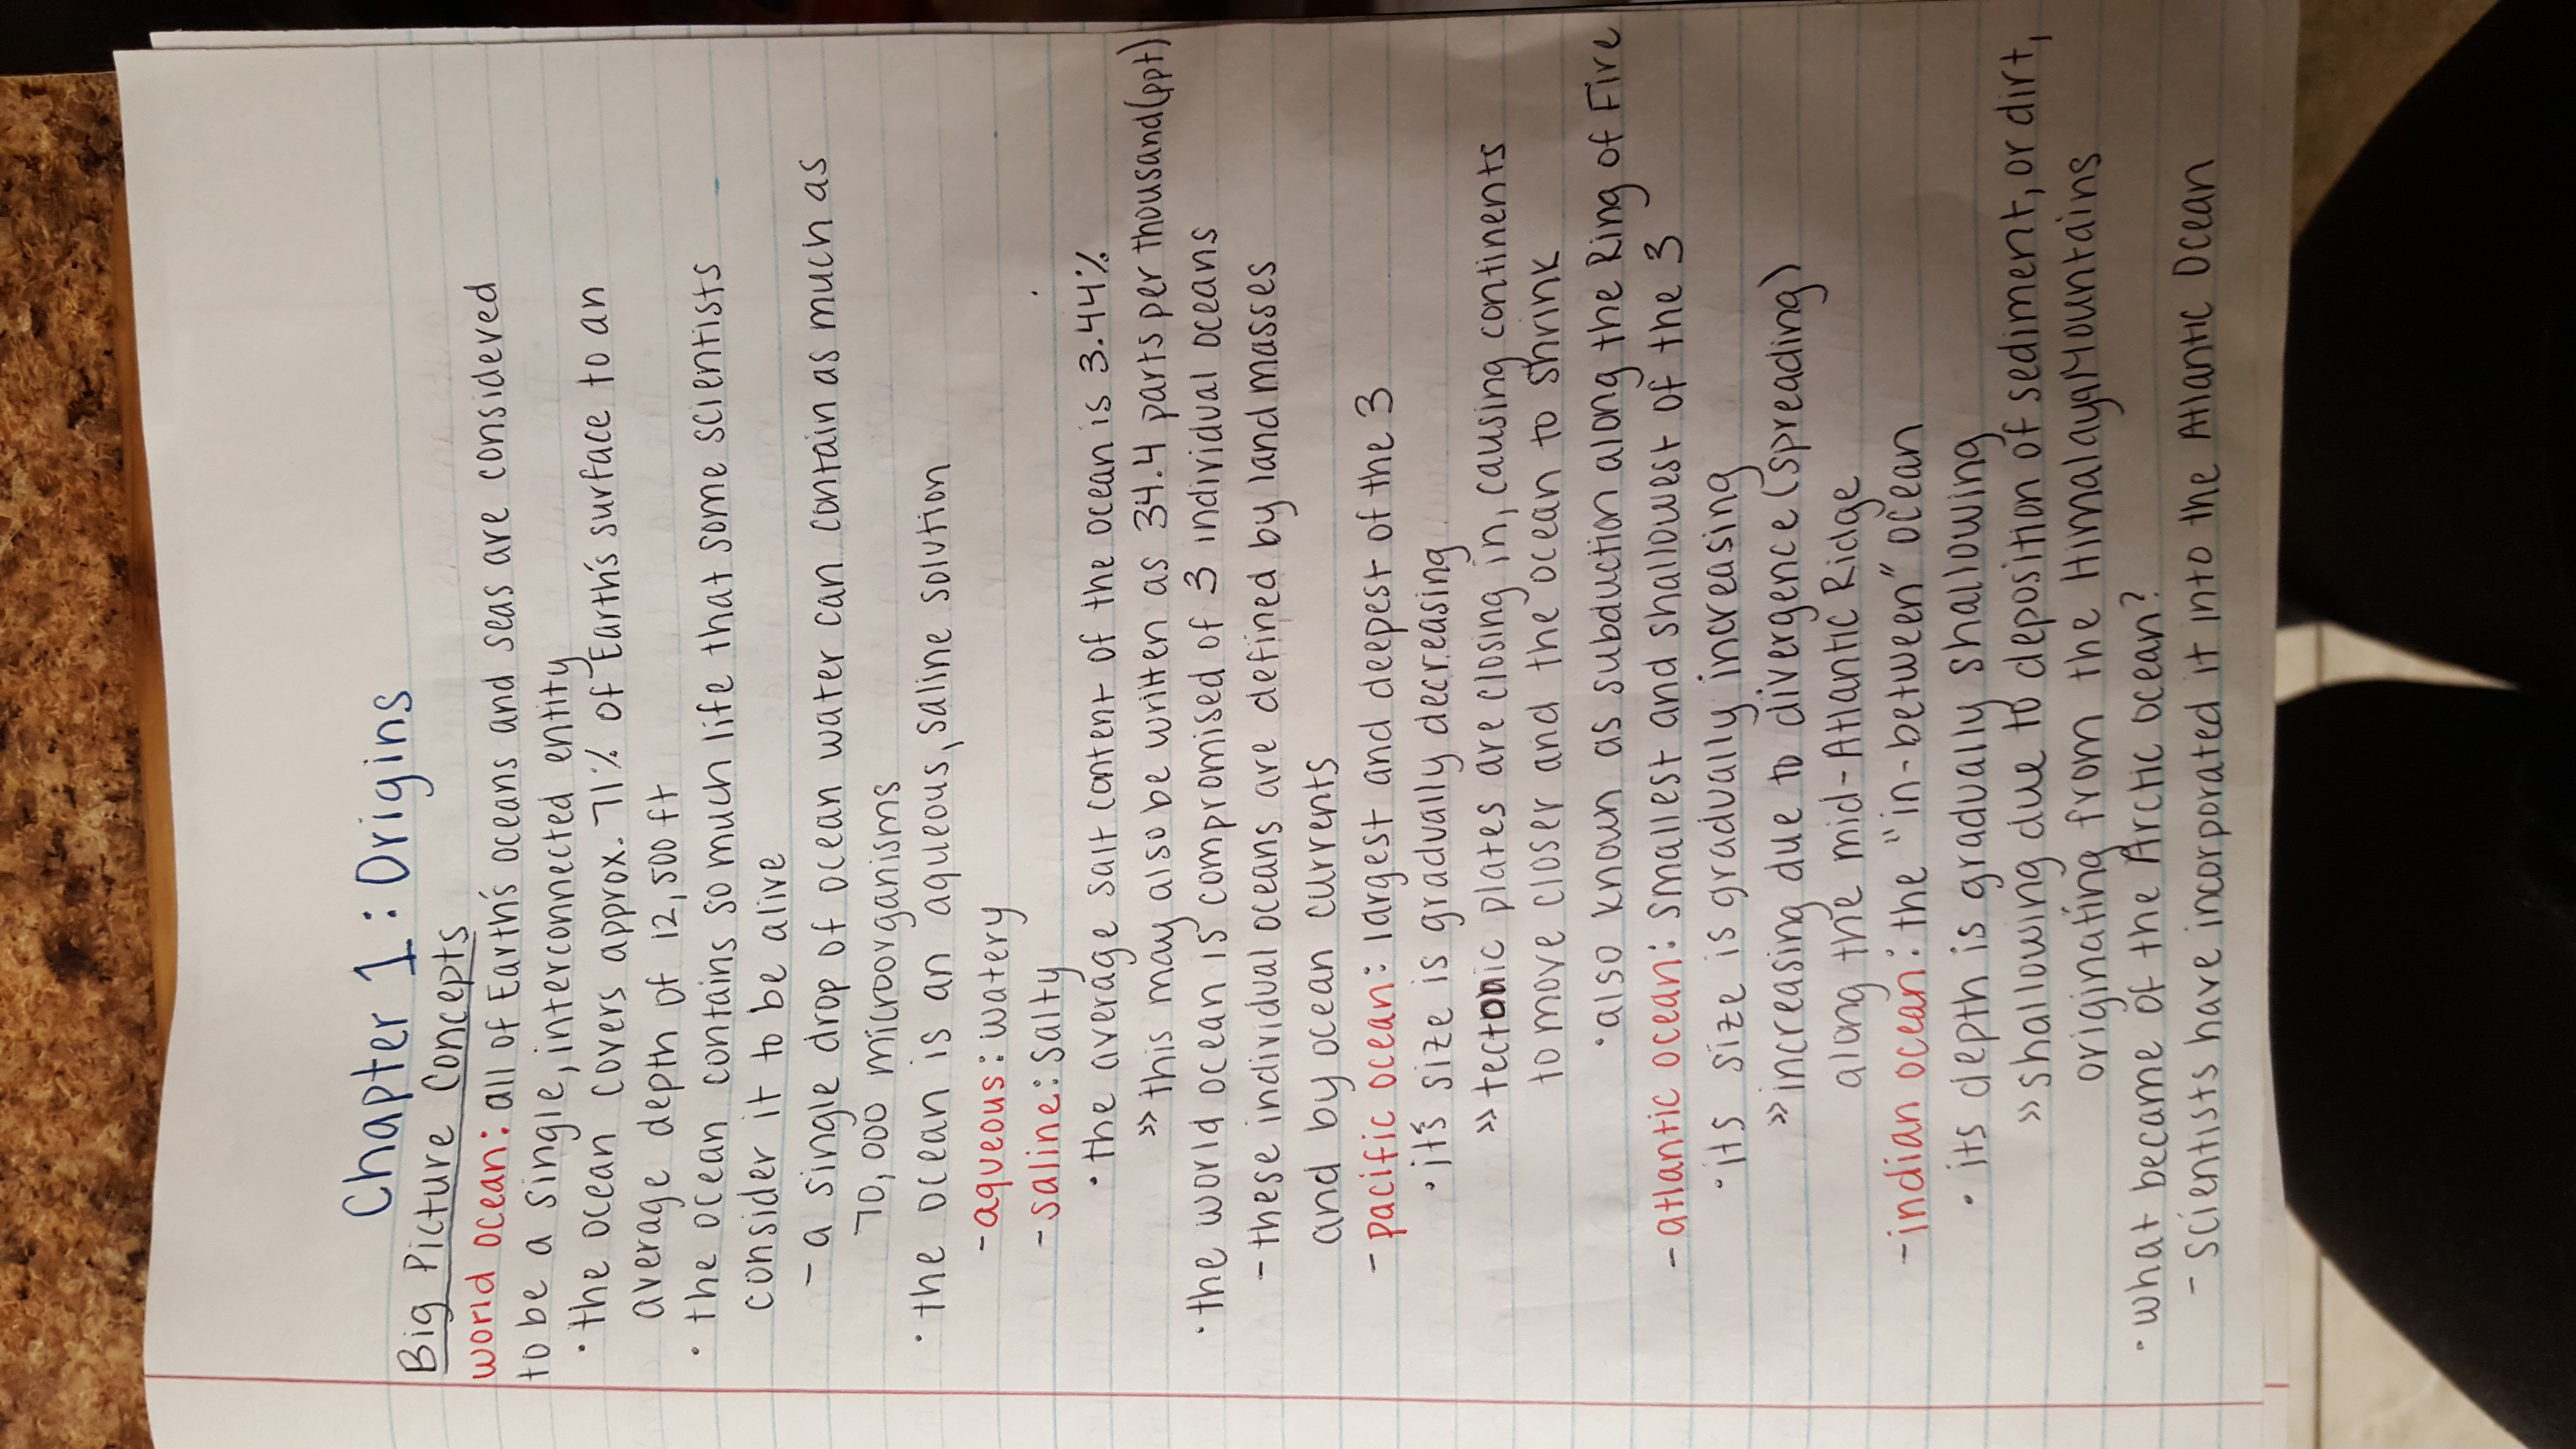 Chapter 1: Origins
Big Picture Concepts
world ocean: all of Earth's oceans and seas are considered
to be a single, interconnected entity
· the ocean covers approx. 71% of Earth's surface to an
average depth of 12,500 ft
· the ocean contains so much life that some scientists
consider it to be alive
- a single drop of ocean water can contain as much as
70,000 microorganisms
· the ocean is an aqueous, saline solution
- aqueous: watery
- saline: salty
· the average salt content of the ocean is 3.44%
>> this may also be written as 34.4 parts per thousand (ppt)
· the world ocean is compromised of 3 individual oceans
- these individual oceans are defined by landmasses
and by ocean currents
- pacific ocean: largest and deepest of the 3
· it's size is gradually decreasing
>> tectonic plates are closing in, causing continents
to move closer and the ocean to shrink
· also known as subduction along the Ring of Fire
- atlantic ocean: smallest and shallowest of the 3
· its size is gradually increasing
>> increasing due to divergence (spreading)
along the mid-Atlantic Ridge
- indian ocean: the "in-between" ocean
· its depth is gradually shallowing
>> shallowing due to deposition of sediment, or dirt,
originating from the Himalaya Mountains
· what became of the Arctic ocean?
- scientists have incorporated it into the Atlantic Ocean